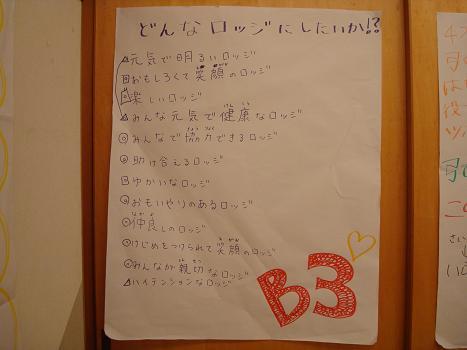 どんなロッジにしたいか!?
△元気で明るいロッジ
□おもしろくて笑顔のロッジ
□楽しいロッジ
△みんな元気で健康なロッジ
○みんなで協力できるロッジ
○助け合えるロッジ
□ゆかいなロッジ
○おもいやりのあるロッジ
○仲良しのロッジ
○けじめをつけられて笑顔のロッジ
○みんなが親切なロッジ
△ハイテンションなロッジ
B3